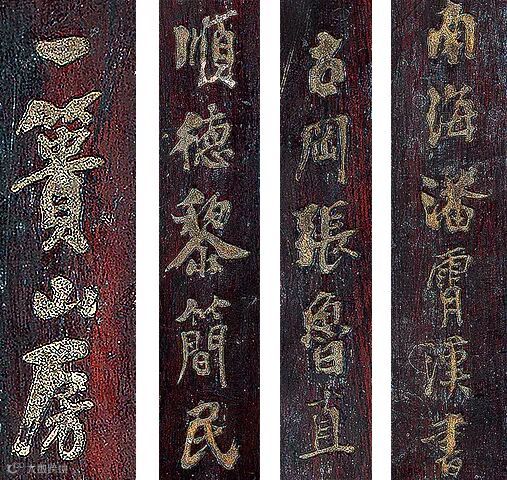 一簣山房
順德黎簡民
古岡張魯直
南海潘霄漢書